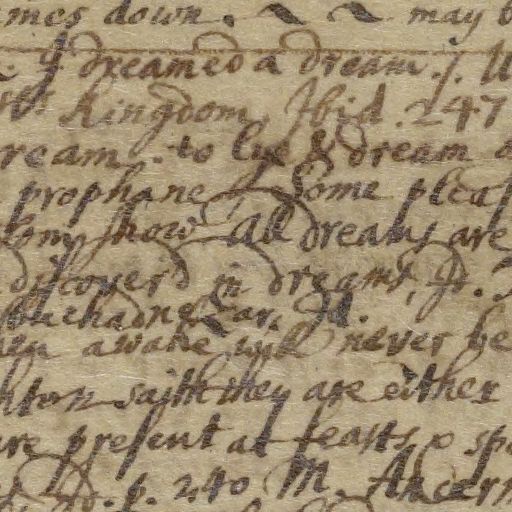 mes down. may b
I dreamed a dream. J. U
kingdom, Ibid. 247
ream. to lye & dream a
prophane, Some pleas
show All dreams are
discover'd in dreams, Id.
chadnezzar. Id.
awake will never be
hton saith they are either
are present at feasts, & sp
Id. p. 240 M. An